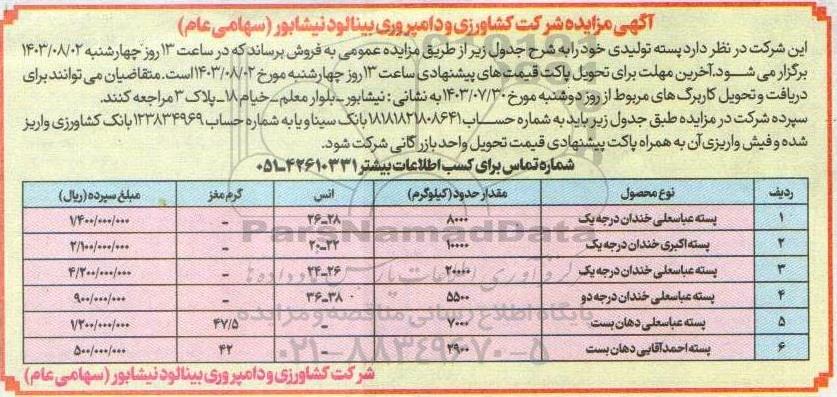 آگهی مزایده شرکت کشاورزی و دامپروری بینالود نیشابور (سهامی عام)
این شرکت در نظر دارد پسته تولیدی خود را به شرح جدول زیر از طریق مزایده عمومی به فروش برساند که در ساعت ۱۳ روز چهارشنبه ۱۴۰۳/۰۸/۰۲
برگزار می شود. آخرین مهلت برای تحویل پاکت قیمت های پیشنهادی ساعت ۱۳ روز چهارشنبه مورخ ۱۴۰۳/۰۸/۰۲ است. متقاضیان می توانند برای
دریافت و تحویل کاربرگ های مربوط از روز دوشنبه مورخ ۱۴۰۳/۰۷/۳۰ به نشانی : نیشابور ـ بلوار معلم ـ خیام ۱۸ ـ پلاک ۳ مراجعه کنند.
سپرده شرکت در مزایده طبق جدول زیر باید به شماره حساب ۱۸۱۸۱۸۲۱۸۰۸۶۴۱ بانک سینا و یا به شماره حساب ۱۲۳۸۳۴۹۶۹ بانک کشاورزی واریز
شده و فیش واریزی آن به همراه پاکت پیشنهادی قیمت تحویل واحد بازرگانی شرکت شود.
شماره تماس برای کسب اطلاعات بیشتر ۴۲۶۱۰۳۳۱ـ۰۵۱
ردیف نوع محصول مقدار حدود (کیلوگرم) انس گرم مغز مبلغ سپرده (ریال)
۱ پسته عباسعلی خندان درجه یک ۸۰۰۰ ۲۸ـ۲۶ – ۱/۴۰۰/۰۰۰/۰۰۰
۲ پسته اکبری خندان درجه یک ۱۰۰۰۰ ۲۲ـ۲۰ – ۲/۱۰۰/۰۰۰/۰۰۰
۳ پسته عباسعلی خندان درجه یک ۲۰۰۰۰ ۲۶ـ۲۴ – ۴/۲۰۰/۰۰۰/۰۰۰
۴ پسته عباسعلی خندان درجه دو ۵۵۰۰ ۳۸ـ۳۶ – ۹۰۰/۰۰۰/۰۰۰
۵ پسته عباسعلی دهان بست ۷۰۰۰ – ۴۷/۵ ۱/۲۰۰/۰۰۰/۰۰۰
۶ پسته احمدآقایی دهان بست ۲۹۰۰ – ۴۲ ۵۰۰/۰۰۰/۰۰۰
شرکت کشاورزی و دامپروری بینالود نیشابور (سهامی عام)
ParsNamadData
گردآوری اطلاعات پارس نماد داده ها
پایگاه اطلاع رسانی مناقصه و مزایده
۰۲۱-۸۸۳۴۹۶۷۰-۵